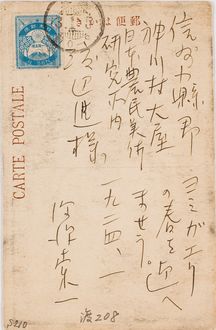 きがは便郵
CARTE POSTALE
信州小縣郡
神川村大屋
日本農民美術
研究所内
渡辺進様。
ヨミガエリ
の春を迎へ
ませう。
一九二四、一
渡208
S210